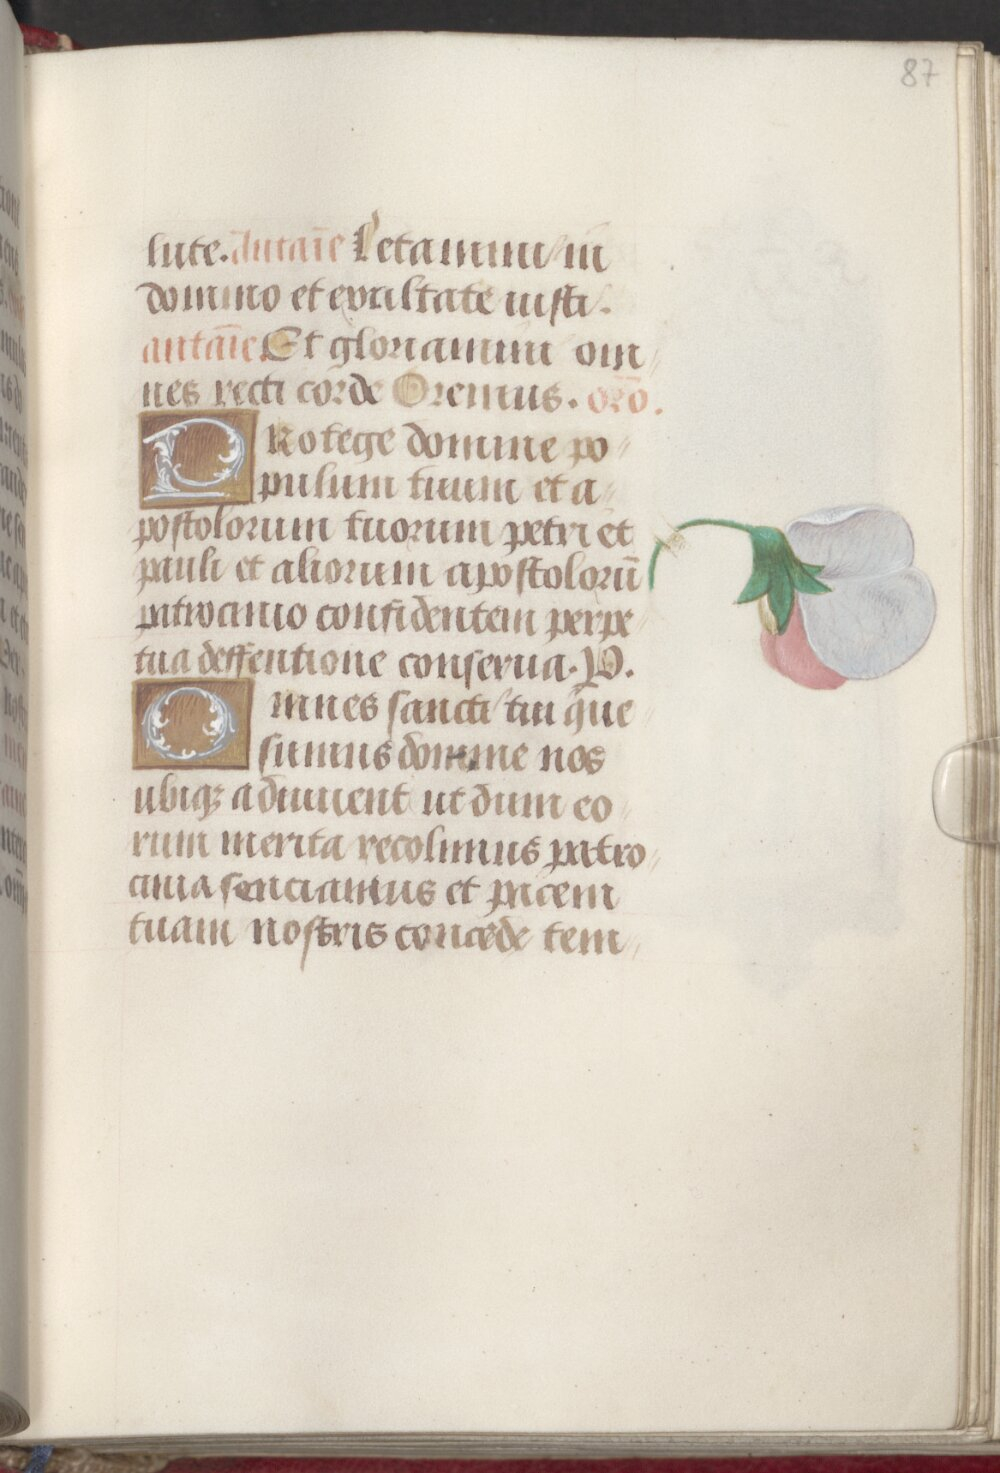 87
lute. Antāne Letamini in
domino et exultate iusti.
antāne. Et gloriamini om
nes recti corde Oremus. orō.
PRotege domine po
pulum tuum et a
postolorum tuorum petri et
pauli et aliorum apostolorū
patrocinio confidentem perpe
tua deffentione conserua. P.
Omnes sancti tui que
sumus domine nos
ubiqꝫ adiuuent ut dum eo
rum merita recolimus patro
cinia senciamus et pacem
tuam nostris concede tem